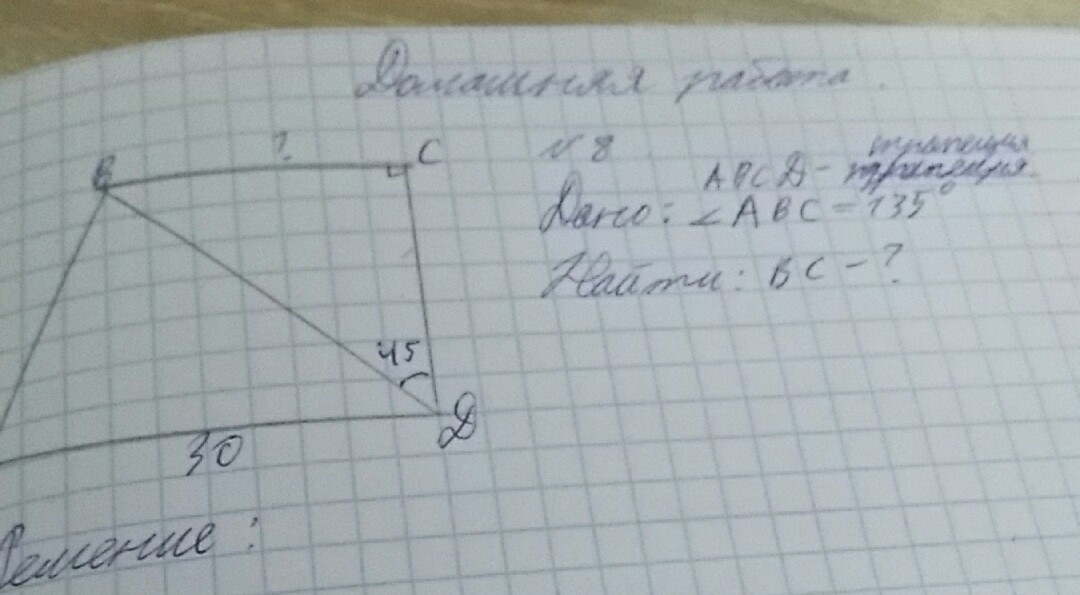 Домашняя работа.
? C
B
45
Д
30
№ 8
трапеция
ABCД - трапеция
Дано: ∠ABC = 135°
Найти: BC - ?
Решение: